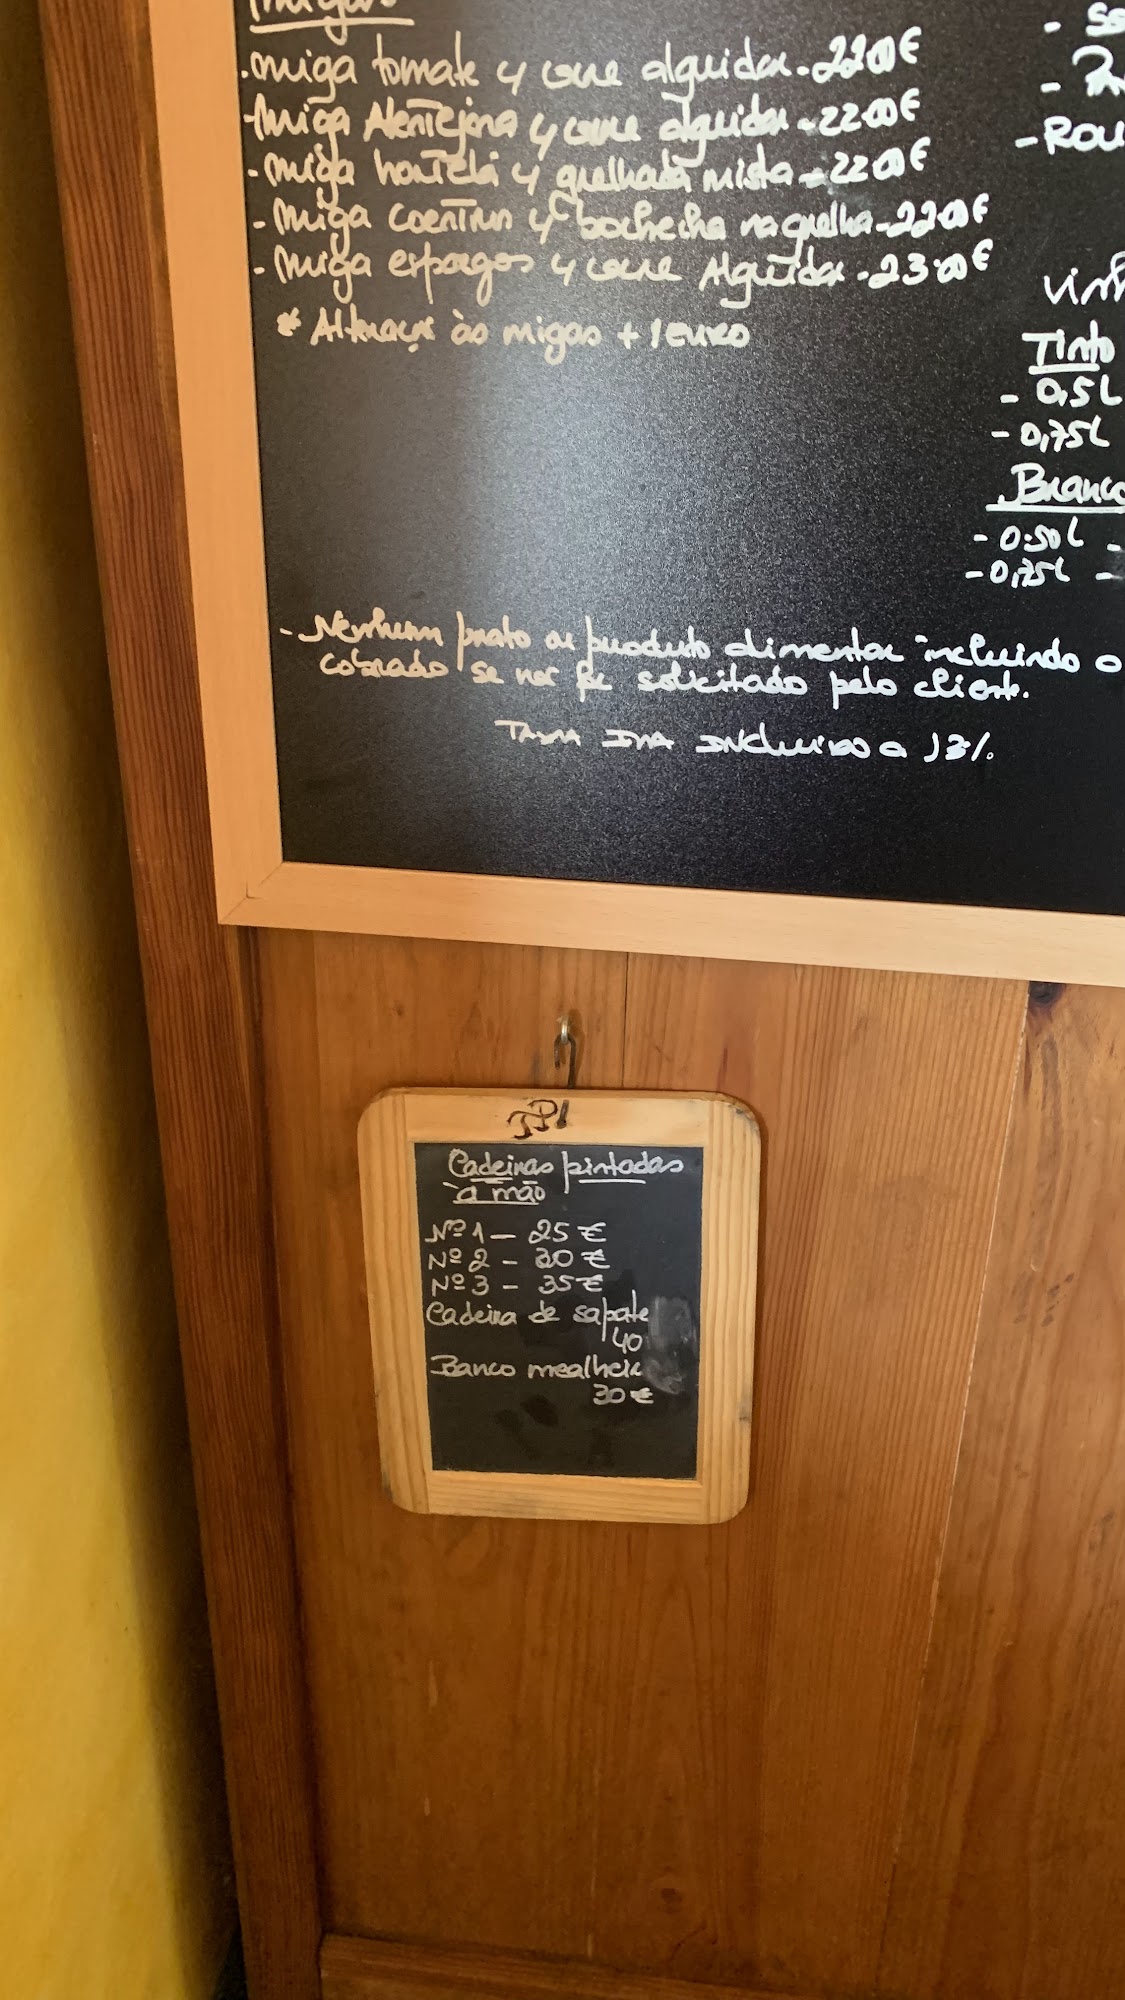 Migas
- miga tomate c/ carne alguidar - 22.00€
- Miga Alentejana c/ carne alguidar - 22.00€
- miga hortelã c/ grelhada mista - 22.00€
- Miga coentros c/ bochecha na grelha - 22.00€
- Miga espargos c/ carne Alguidar - 23.00€
* Alteração às migas + 1 euro
Tinto
- 0,5L
- 0,75L
Branco
- 0.50L -
- 0,75L -
- Nenhum prato ou produto alimentar incluindo o
cobrado se não for solicitado pelo cliente.
Taxa IVA incluido a 13%.
Cadeiras pintadas
à mão
Nº 1 - 25 €
Nº 2 - 30 €
Nº 3 - 35 €
Cadeira de sapate
40
Banco mealheir
30 €